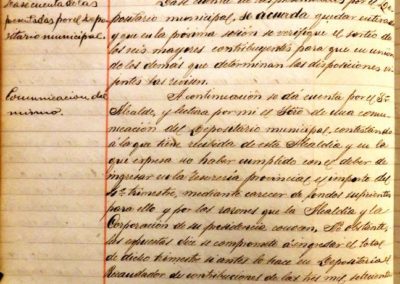 Dase cuenta de las
presentadas por el Depo-
sitario municipal.
positario municipal, se acuerda quedar enterado
y que en la próxima sesión se verifique el sorteo de
los seis mayores contribuyentes para que en union
de los demás que determinan las disposiciones vi-
gentes las revisen.
Comunicacion del
mismo.
A continuación se dá cuenta por el Sr.
Alcalde, y lectura por mi el Srio de una comu-
nicación del Depositario municipal, contestando
á la que tiene recibida de esta Alcaldía y en la
que expresa no haber cumplido con el deber de
ingresar en la tesorería provincial el importe del
4º trimestre, mediante carecer de fondos suficientes
para ello y por las razones que la Alcaldía y la
Corporación de su presidencia conocen. No obstante
lo expuesto dice se compromete á ingresar el total
de dicho trimestre si antes lo hace en Depositaría el
Recaudador de contribuciones de las tres mil, setecientas